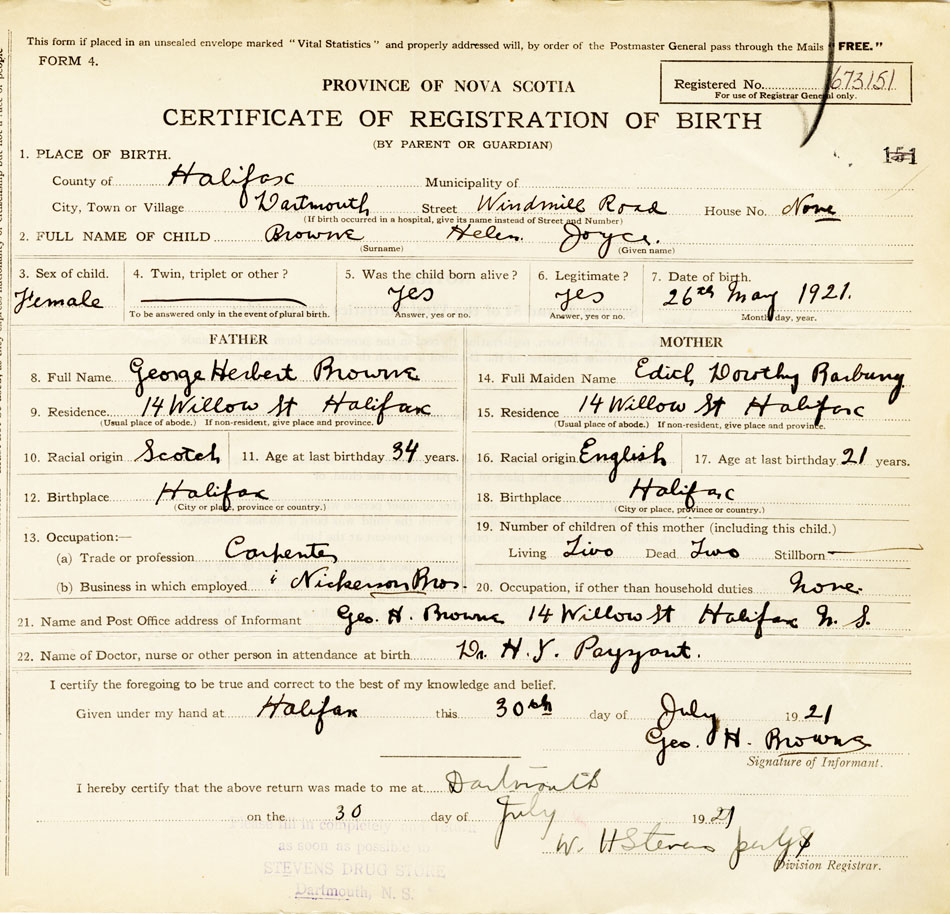 This form if placed in an unsealed envelope marked "Vital Statistics" and properly addressed will, by order of the Postmaster General pass through the Mails "FREE."
FORM 4.
PROVINCE OF NOVA SCOTIA
Registered No. 673151
For use of Registrar General only.
CERTIFICATE OF REGISTRATION OF BIRTH
(BY PARENT OR GUARDIAN)
151
1. PLACE OF BIRTH.
County of Halifax Municipality of
City, Town or Village Dartmouth Street Windmill Road House No. None
(If birth occurred in a hospital, give its name instead of Street and Number)
2. FULL NAME OF CHILD Browne Helen Joyce.
(Surname) (Given name)
3. Sex of child. 4. Twin, triplet or other? 5. Was the child born alive? 6. Legitimate? 7. Date of birth.
Female yes yes 26th May 1921.
To be answered only in the event of plural birth. Answer, yes or no. Answer, yes or no. Month, day, year.
FATHER MOTHER
8. Full Name George Herbert Browne 14. Full Maiden Name Edith Dorothy
9. Residence 14 Willow St Halifax 15. Residence 14 Willow St Halifax
(Usual place of abode.) If non-resident, give place and province. (Usual place of abode.) If non-resident, give place and province.
10. Racial origin Scotch 11. Age at last birthday 34 years. 16. Racial origin English 17. Age at last birthday 21 years.
12. Birthplace Halifax 18. Birthplace Halifax
(City or place, province or country.) (City or place, province or country.)
13. Occupation:— 19. Number of children of this mother (including this child.)
(a) Trade or profession Carpenter Living Two Dead Two Stillborn
(b) Business in which employed Nickerson Bros. 20. Occupation, if other than household duties None.
21. Name and Post Office address of Informant Geo. H. Browne 14 Willow St Halifax N. S.
22. Name of Doctor, nurse or other person in attendance at birth Dr. H. Y. Payzant.
I certify the foregoing to be true and correct to the best of my knowledge and belief.
Given under my hand at Halifax this 30th day of July 1921
Geo. H. Browne
Signature of Informant.
I hereby certify that the above return was made to me at Dartmouth
on the 30 day of July 1921
Please fill in completely
as soon as possible to
W. H Stevens
Division Registrar.
STEVENS DRUG STORE
Dartmouth, N. S.